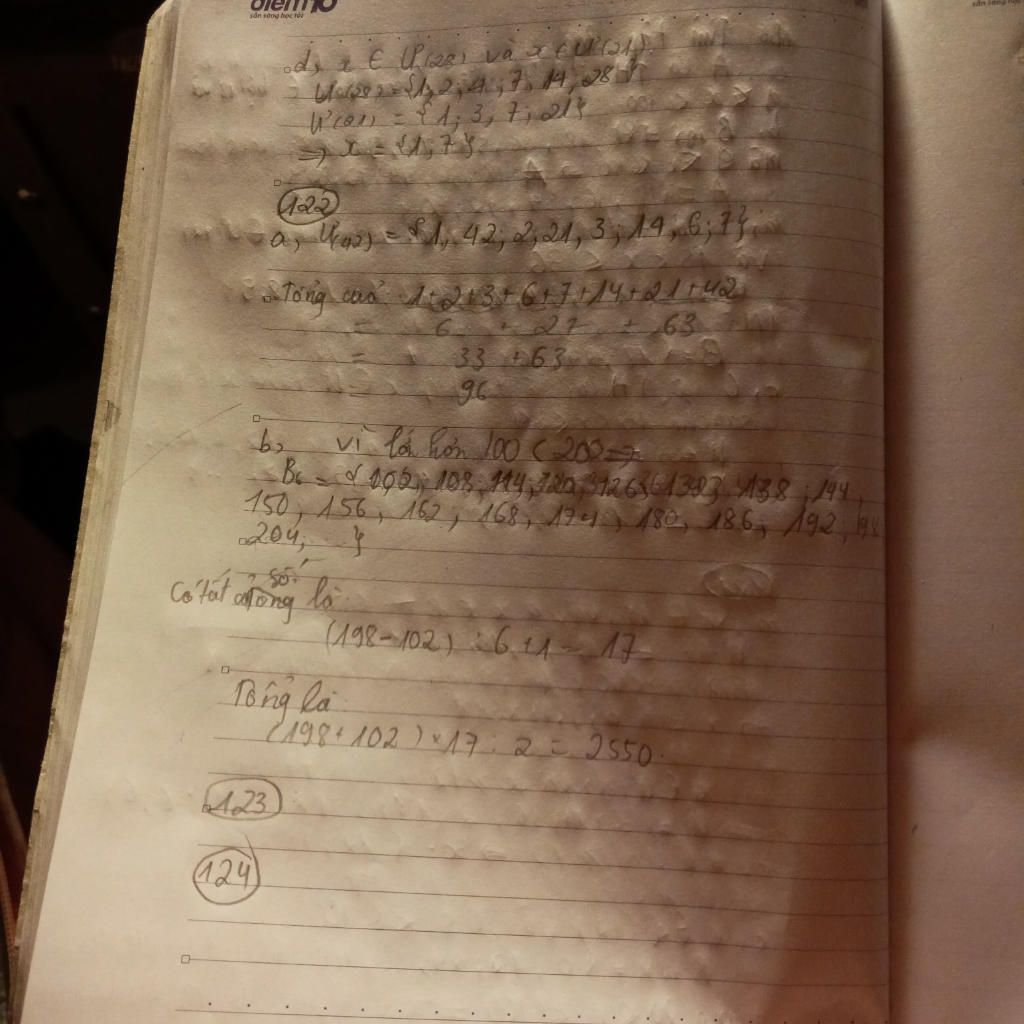 điểm10
sẵn sàng học tốt
d, x ∈ Ư(28) và x ∈ Ư(21).
Ư(28) = {1, 2; 4; 7, 14, 28}
Ư(21) = {1; 3, 7; 21}
=> x = {1; 7}
122
a, Ư(42) = {1, 42, 2; 21, 3; 14, 6; 7}
Tổng 1+2+3+6+7+14+21+42
= 6 + 27 + 63
= 33 + 63
= 96
b, vì 100 < 200 =>
B6 = { 102; 108; 114; 120; 126; 138; 144,
150, 156, 162, 168, 174, 180, 186, 192, 198
204; }
số
Có tất là:
(198-102) : 6 +1 = 17
Tổng là
(198+102) × 17 : 2 = 2550.
123
124